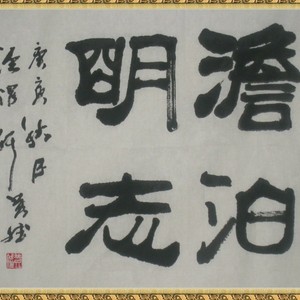 澹泊
明志
庚寅秋月